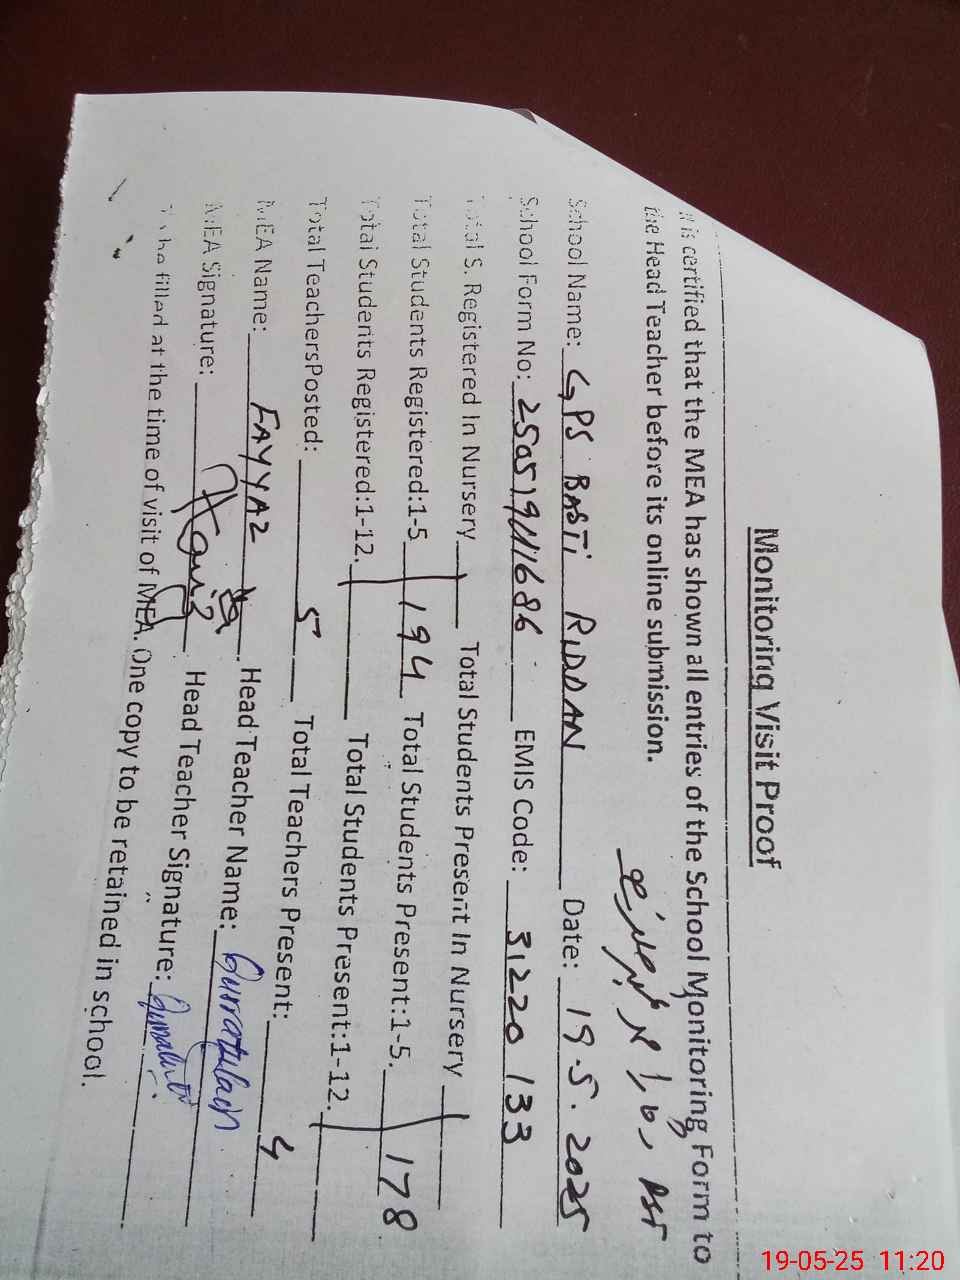 Monitoring Visit Proof
It is certified that the MEA has shown all entries of the School Monitoring Form to
the Head Teacher before its online submission.
School Name: GPS BASTI RIDDAN Date: 19.5.2025
School Form No: EMIS Code: 31220133
Total S. Registered In Nursery Total Students Present In Nursery
Total Students Registered:1-5 194 Total Students Present:1-5. 178
Total Students Registered:1-12. Total Students Present:1-12.
Total TeachersPosted: 5 Total Teachers Present: 4
MEA Name: FAYYAZ Head Teacher Name: Qurratulain
MEA Signature: Head Teacher Signature:
To be filled at the time of visit of MEA. One copy to be retained in school.
19-05-25 11:20